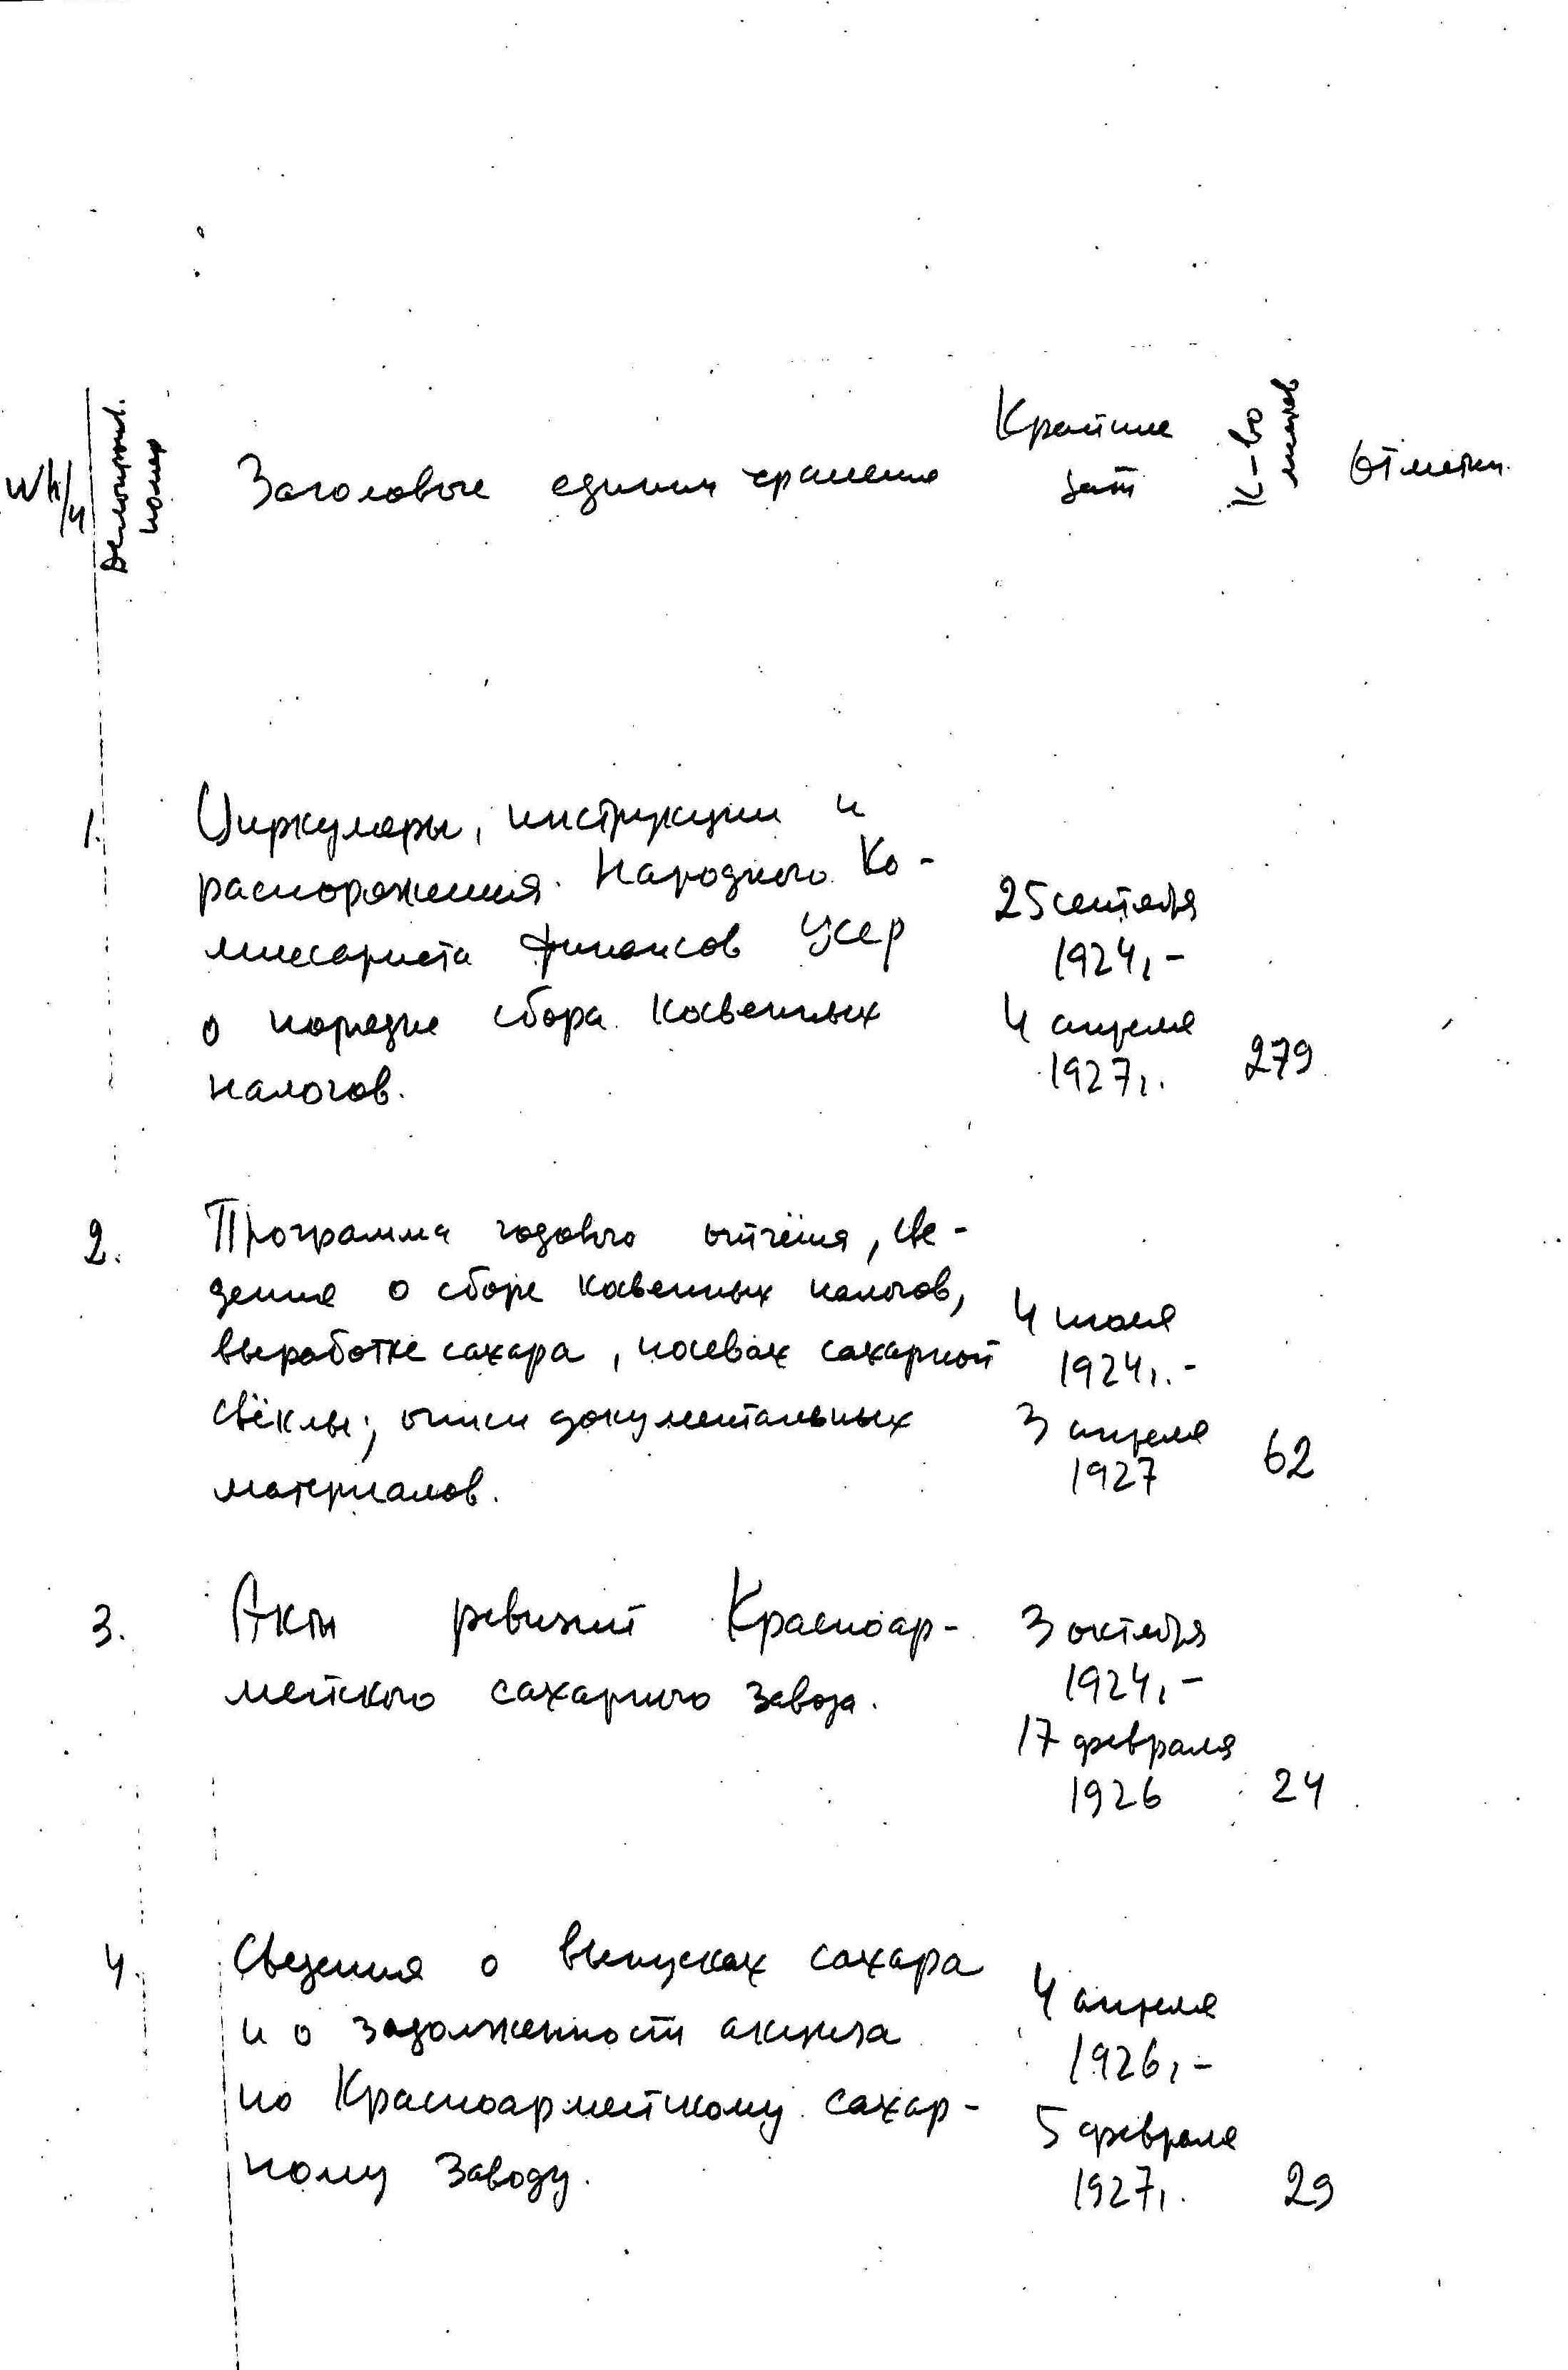 № п/п
Делопроизв. номер
Заголовок единиц хранения
Крайние даты
К-во листов
Отметки
1.
Циркуляры, инструкции и
распоряжения Народного Ко-
миссариата финансов УССР
о порядке сбора косвенных
налогов.
25 сентября
1924г. -
4 апреля
1927г.
279
2.
Программа годового отчёта, све-
дения о сборе косвенных налогов,
выработке сахара, посевах сахарной
свёклы; описи документальных
материалов.
4 июля
1924г. -
3 апреля
1927
62
3.
Акты ревизий Красноар-
мейского сахарного завода.
3 октября
1924г. -
17 февраля
1926
24
4.
Сведения о выпусках сахара
и о задолженности акциза
по Красноармейскому сахар-
ному заводу.
4 апреля
1926г. -
5 февраля
1927г.
29